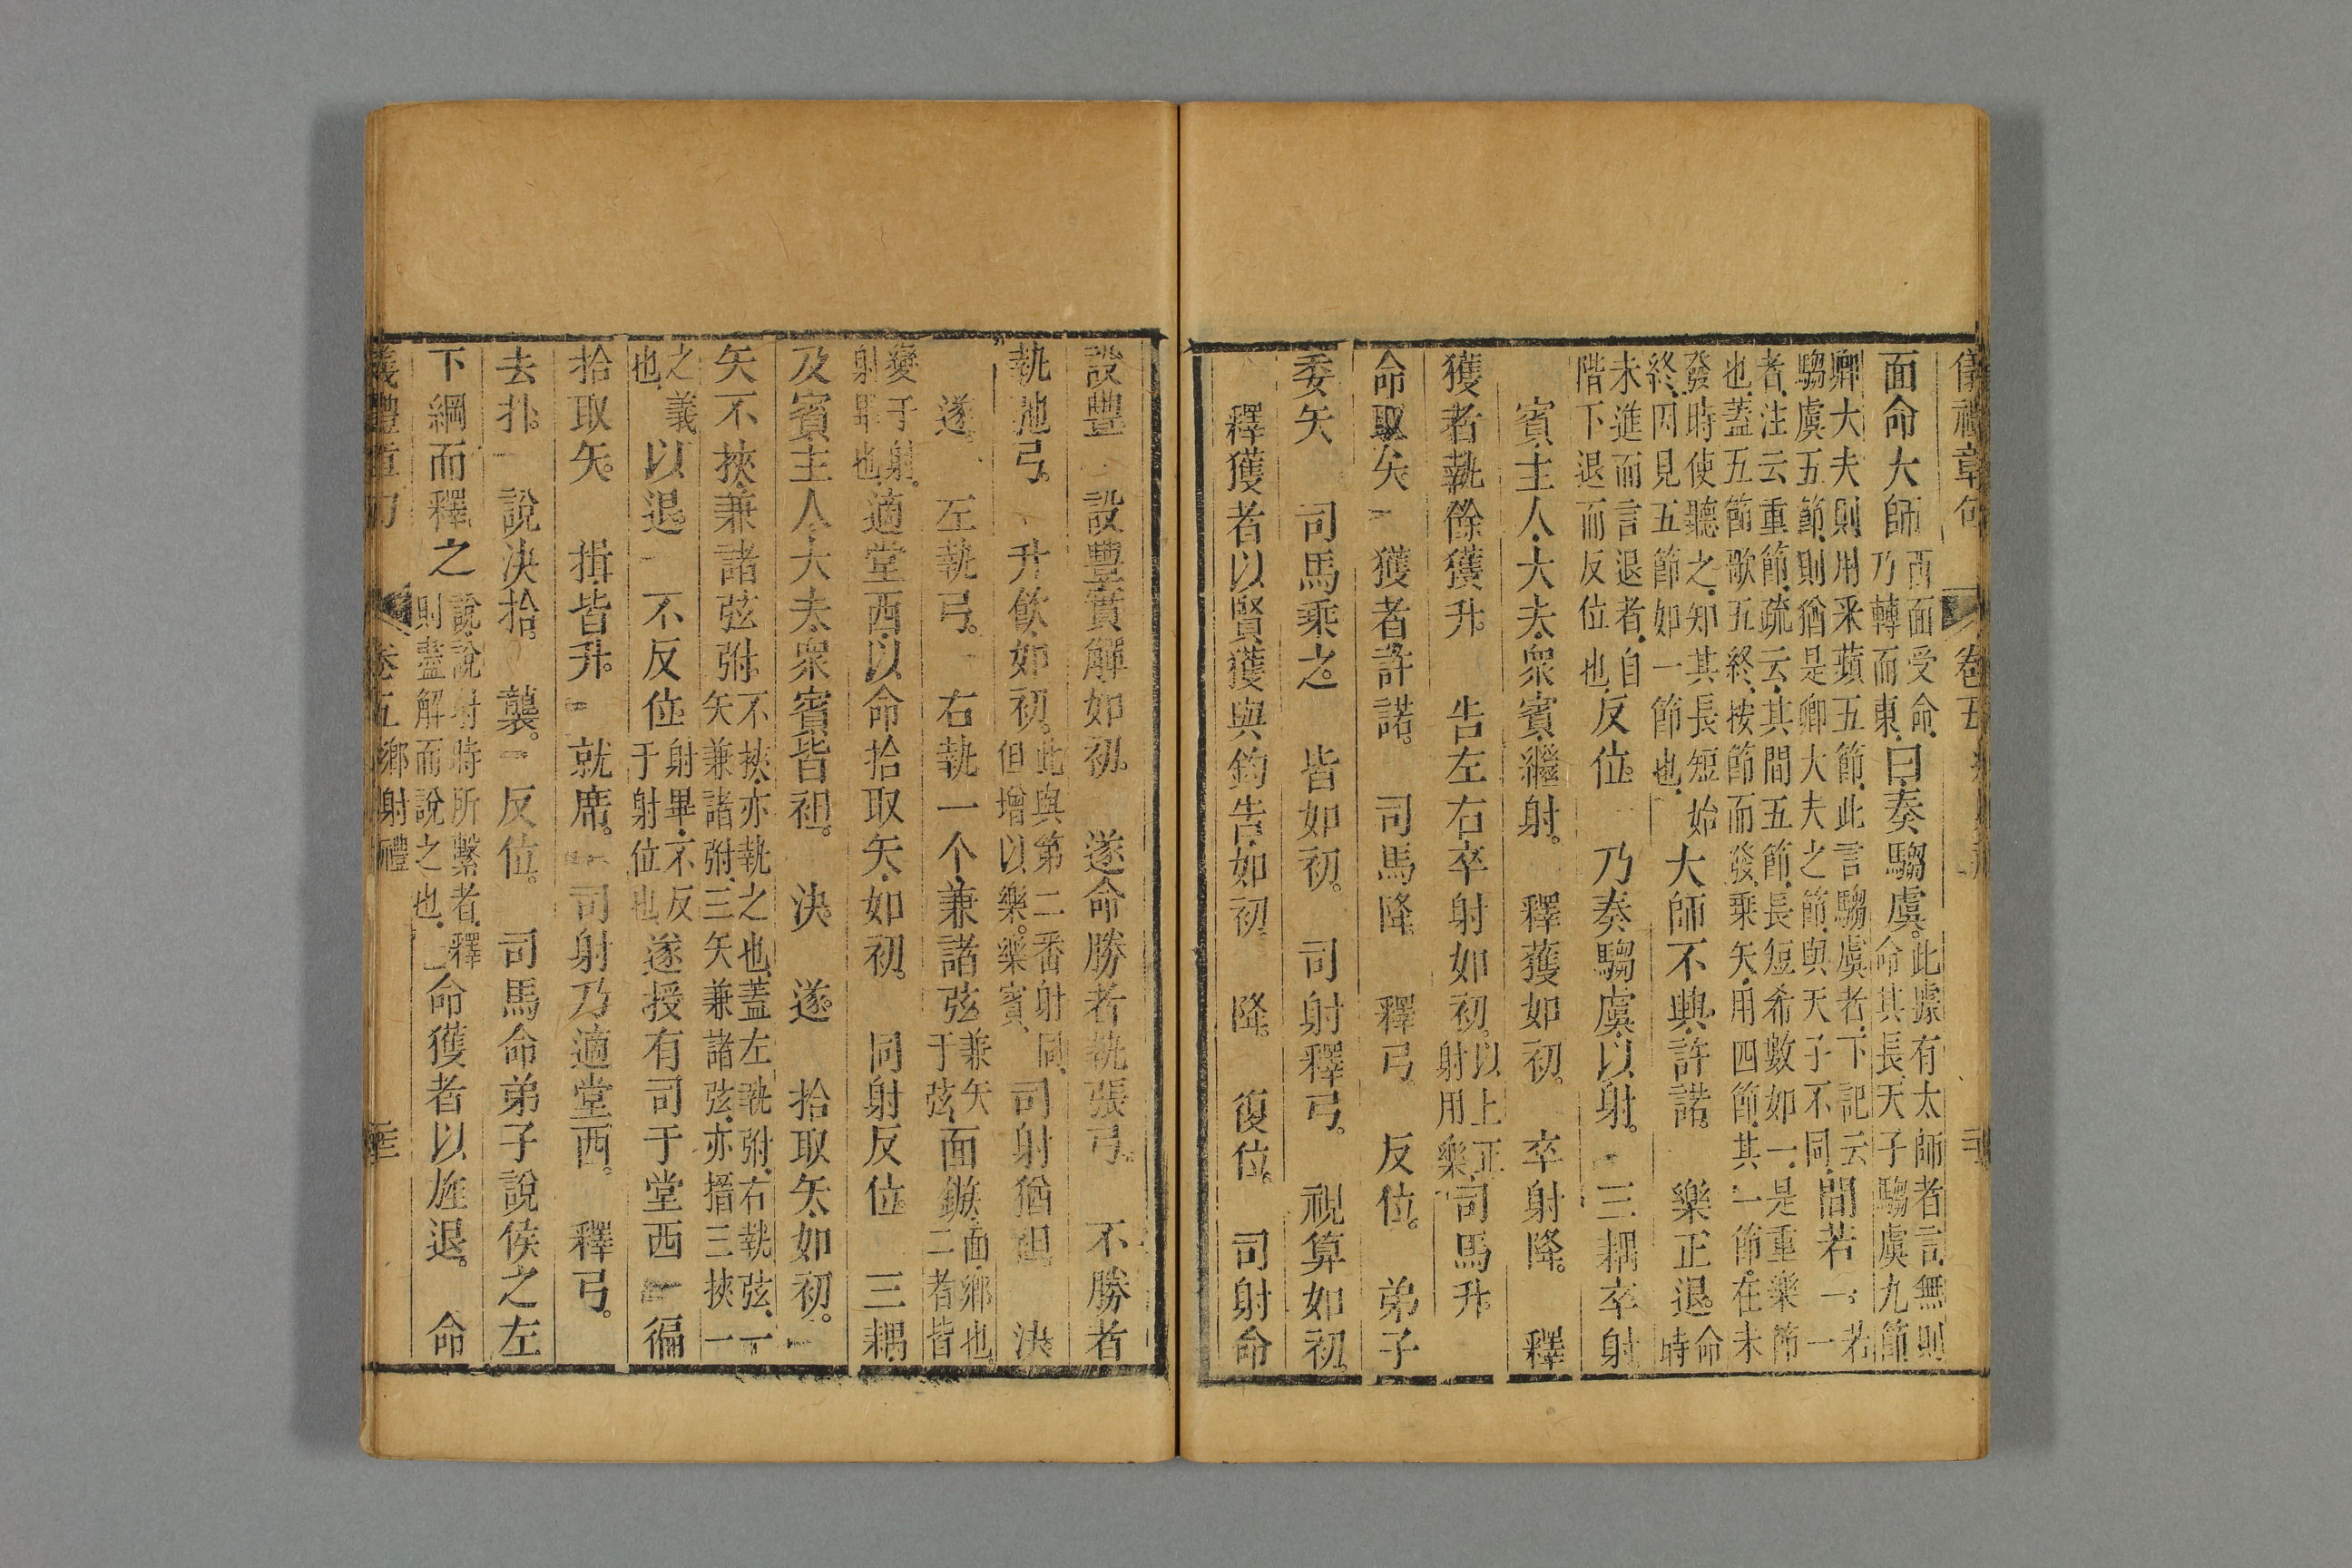 儀禮章句 卷五
面命大師西面受命乃轉而東曰奏騶虞此據有太師者言無則命其長天子騶虞九節
卿大夫則用采蘋五節此言騶虞者下記云騶虞五節則猶是卿大夫之節與天子不同間若一若一
者注云重節疏云其間五節長短希數如一是重樂節也蓋五節歌五終按節而發乘矢用四節其一節在未
發時使聽之知其長短始終因見五節如一節也大師不興許諾樂正退命時
未進而言退者自階下退而反位也反位乃奏騶虞以射三耦卒射
賓主人大夫衆賓繼射釋獲如初卒射降釋
獲者執餘獲升告左右卒射如初以上正射用樂司馬升
命取矢獲者許諾司馬降釋弓反位弟子
委矢司馬乘之皆如初司射釋弓視算如初
釋獲者以賢獲與鈞告如初降復位司射命
設豐設豐實觶如初遂命勝者執張弓不勝者
執弛弓升飲如初此與第二番射同但增以樂樂賓司射猶袒決
遂左執弓右執一个兼諸弦兼矢于弦面鏃面鄉也二者皆
變于射射畢也適堂西以命拾取矢如初司射反位三耦
及賓主人大夫衆賓皆袒決遂拾取矢如初
矢不挾兼諸弦弣不挾亦執之也蓋左執弣右執弦一矢兼諸弣三矢兼諸弦亦搢三挾一
之義也以退不反位射畢不反于射位也遂授有司于堂西徧
拾取矢揖皆升就席司射乃適堂西釋弓
去扑說決拾襲反位司馬命弟子說侯之左
下綱而釋之說說射時所繫者釋則盡解而說之也命獲者以旌退命
儀禮章句 卷五 鄉射禮